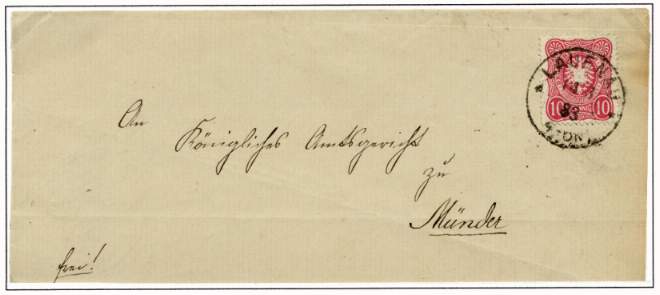 LAUENAU
83
10 10
An
Königliches Amtsgericht
zu
Münder
frei!